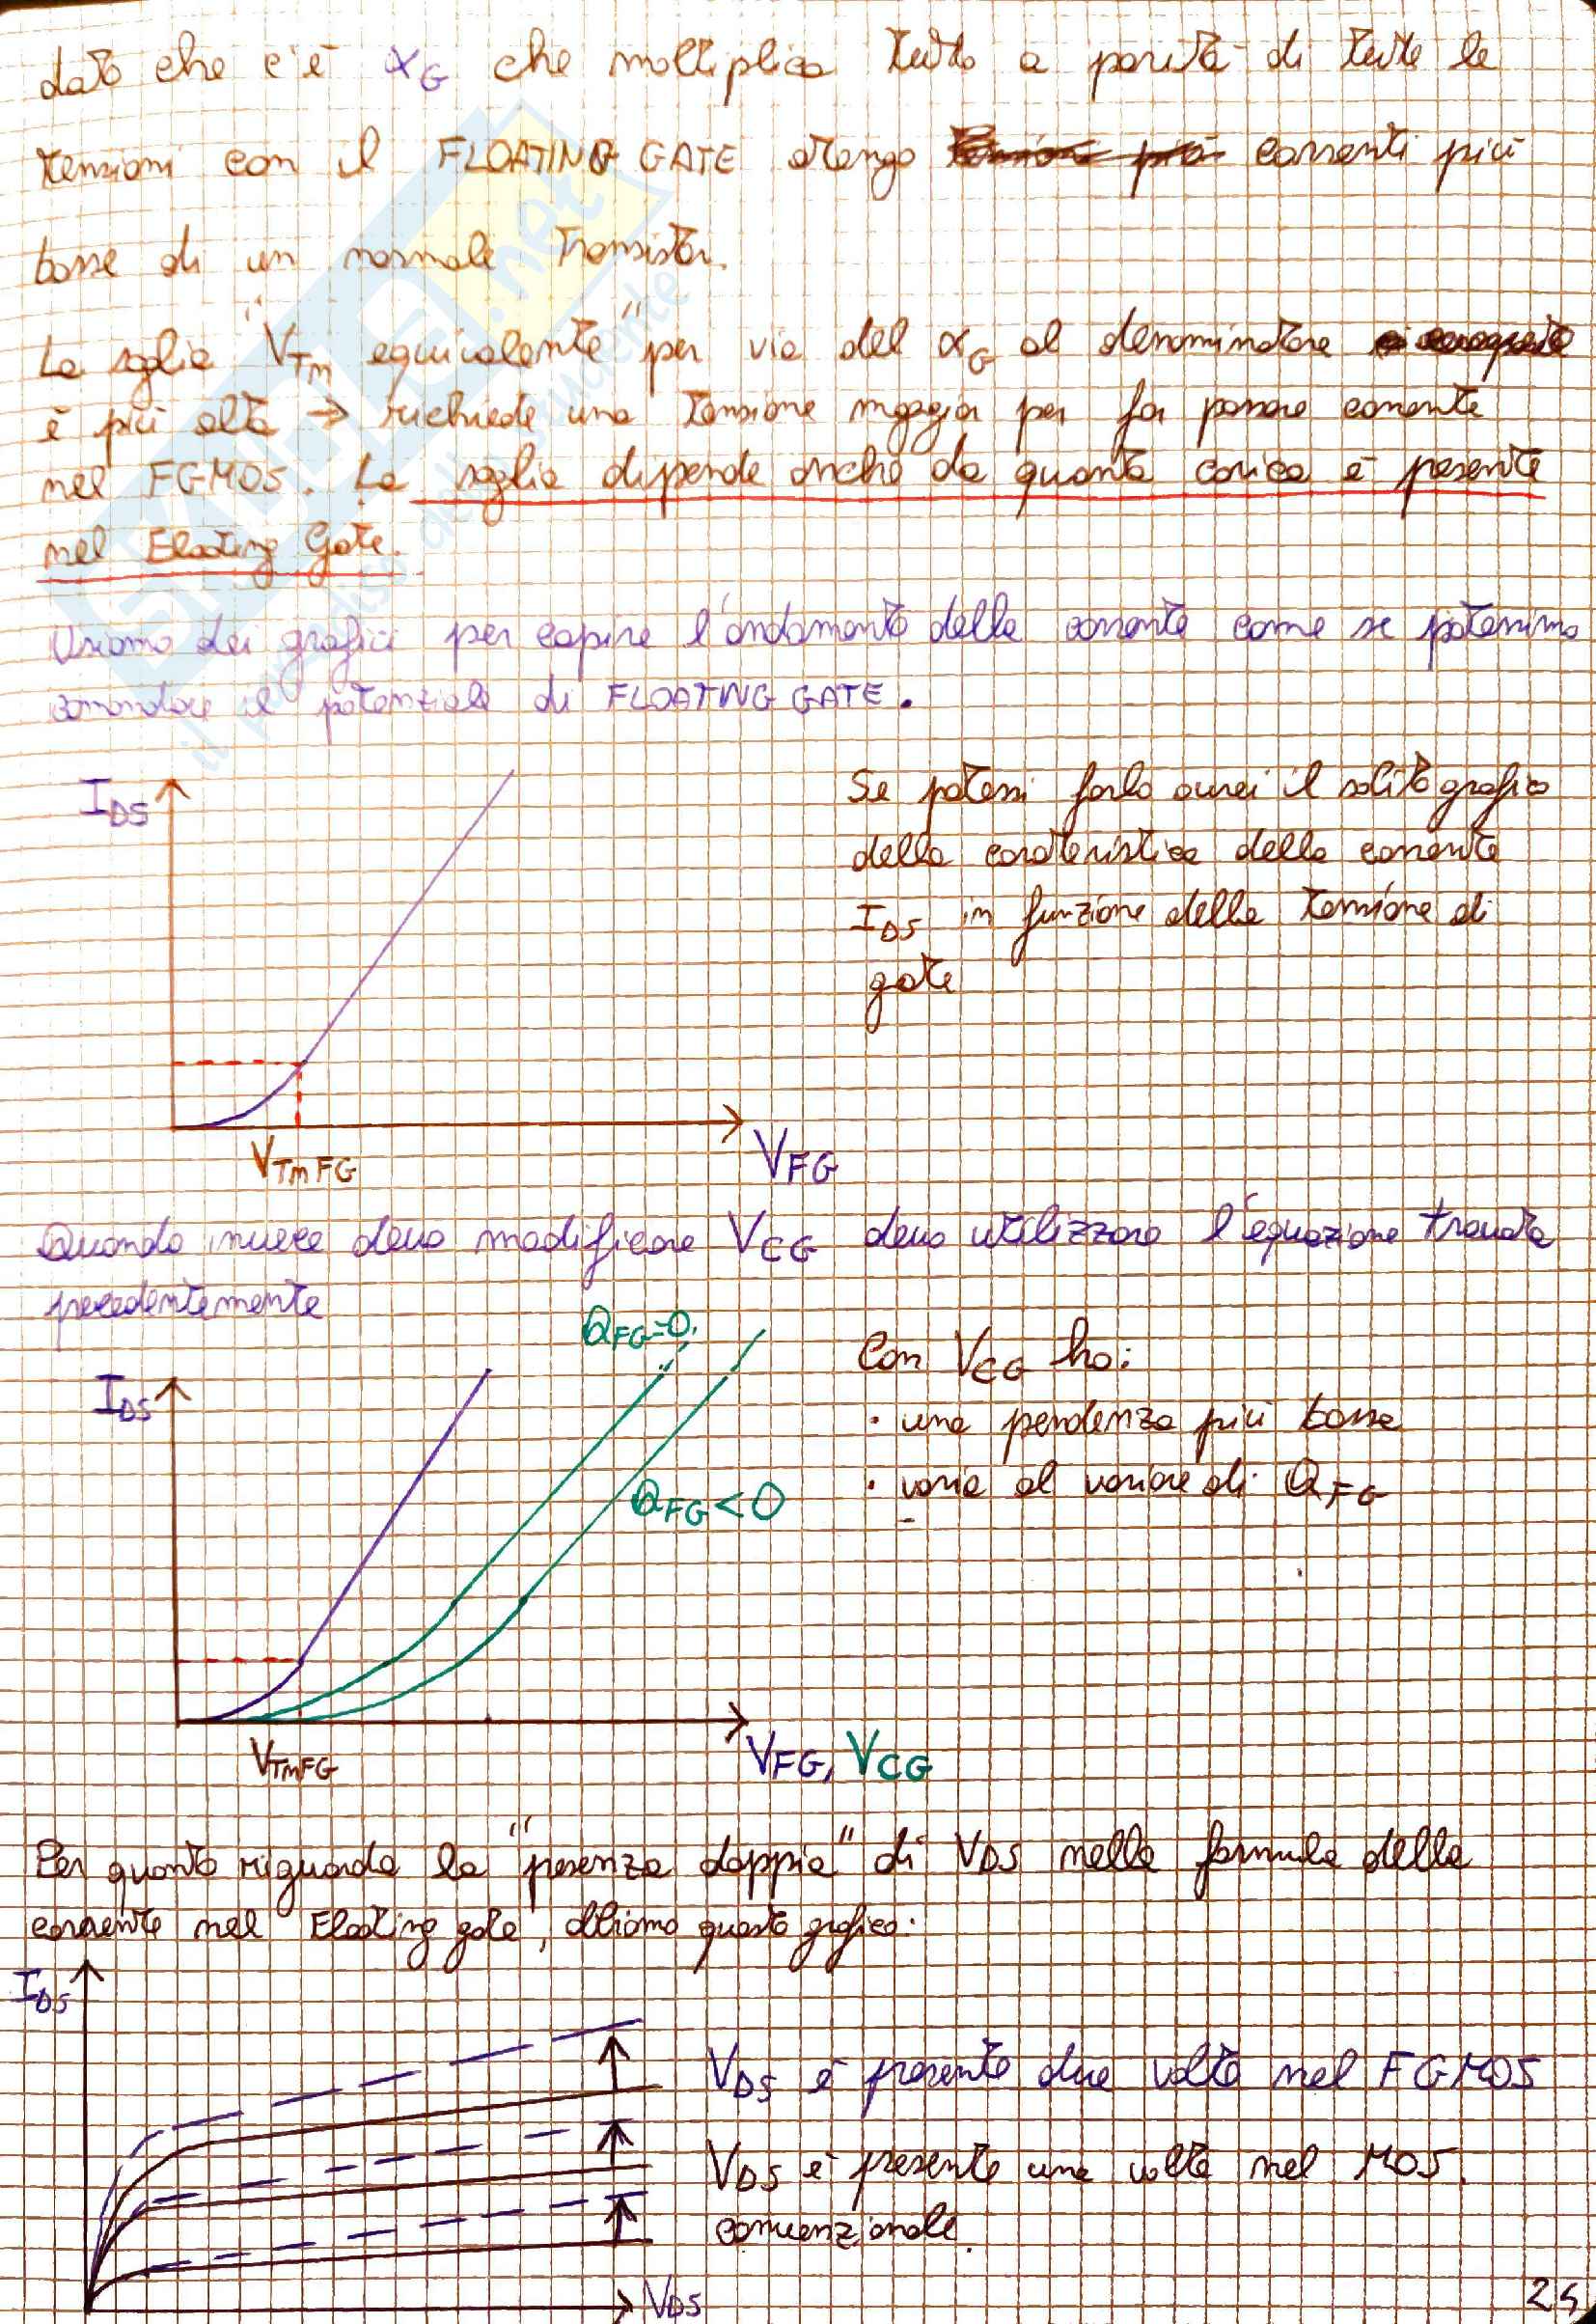 dato che c'è α_G che moltiplica tutto a parità di tutte le
tensioni con il FLOATING GATE otengo correnti più
basse di un normale transistor.
La soglia "V_Tn equivalente" per via del α_G al denominatore
è più alta → richiede una tensione maggior per far passare corrente
nel FGMOS. La soglia dipende anche da quanta carica è presente
nel Floating Gate.
Usiamo dei grafici per capire l'andamento della corrente come se potessimo
comandare il potenziale di FLOATING GATE.
I_DS
Se potessi farlo avrei il solito grafico
della caratteristica della corrente
I_DS in funzione della tensione di
gate
V_TnFG
V_FG
Quando invece devo modificare V_CG devo utilizzare l'equazione trovata
precedentemente
Q_FG=0
I_DS
Con V_CG ho:
· una pendenza più bassa
Q_FG<0
· varia al variare di Q_FG
V_TnFG
V_FG, V_CG
Per quanto riguarda la "presenza doppia" di V_DS nella formula della
corrente nel Floating gate, abbiamo questo grafico:
I_DS
V_DS è presente due volte nel FGMOS
V_DS è presente una volta nel MOS
convenzionale.
V_DS
SKUOLA.net
il paradiso dello studente